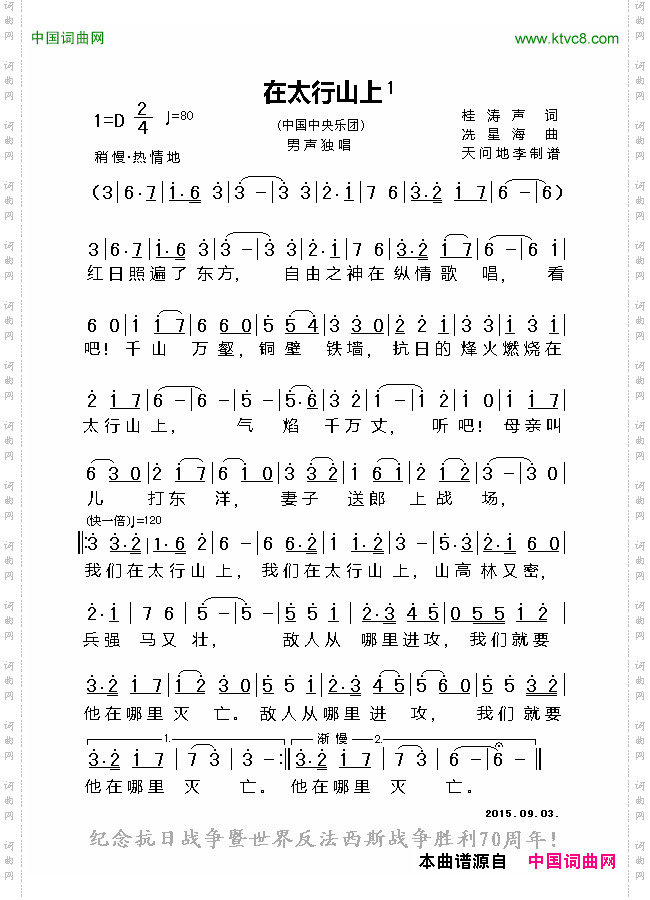 中国词曲网 www.ktvc8.com
在太行山上1
1=D 2/4 ♩=80
(中国中央乐团)
男声独唱
桂涛声 词
冼星海 曲
天问地李制谱
稍慢·热情地
(3|6·7|i·6 3|3 -|3 3|2·i|7 6|3·2 i 7|6 -|6)
3|6·7|i·6 3|3 -|3 3|2·i|7 6|3·2 i 7|6 -|6
红日照遍了 东方, 自由之神在 纵情歌 唱, 看
6 0|i i 7|6 6 0|5 5 4|3 3 0|2 2 i|3 3|i 3 3
吧! 千山 万 壑, 铜 壁 铁墙, 抗日的 烽火燃烧在
2 i 7|6 -|6 -|5 -|5·6|3 2|i -|i 2|i 0|i i 7
太行山上, 气 焰 千万丈, 听吧! 母亲叫
6 3 0|2 i 7|6 i 0|3 3 2|i 6 i|2 i 2|3 -|3 0
儿 打东 洋, 妻子 送郎 上战 场,
(快一倍)♩=120
‖:3 3·2|1·6 2|6 -|6 6·2|i i·2|3 -|5·3|2·i 6 0|
我们在太行山上, 我们在太行山上, 山高 林又密,
2·i|7 6|5 -|5 -|5 5 i|2·3 4 5|0 5 5 i 2|
兵强 马又 壮, 敌人从 哪里进攻, 我们就要
3·2 i 7|i 2 3 0|5 5 i|2·3 4 5|4 5|0 5 5|5 3 2|
他在哪里 灭 亡。 敌人从哪里进 攻, 我们 就要
1. 渐慢 2.
3·2 i 7|7 3|3 -:‖3·2 i 7|7 3|6 -|6 -‖
他在哪里 灭 亡。 他在哪里 灭 亡。
2015.09.03.
纪念抗日战争暨世界反法西斯战争胜利70周年!
本曲谱源自 中国词曲网